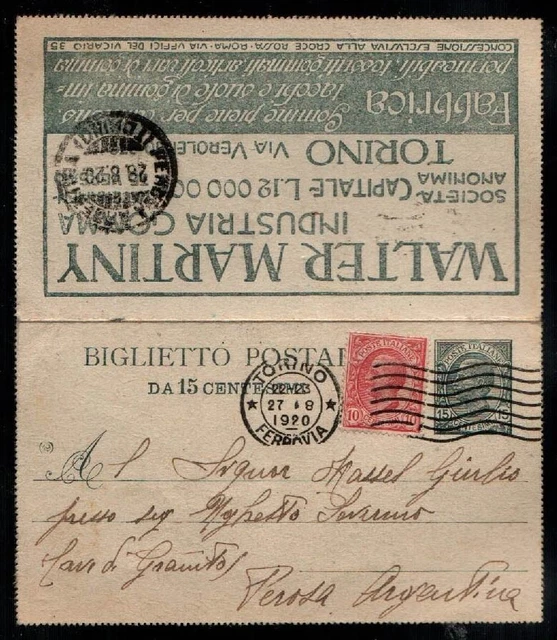 CONCESSIONE ESCLVSIVA ALLA CROCE ROSSA · ROMA · VIA VFFICI DEL VICARIO 35
permeabili, tessuti gommati articoli vari di gomma
Fabbrica tacchi e suole di gomma im-
Gomme piene per
TORINO VIA VEROLEN
SOCIETÀ ANONIMA CAPITALE L.12 000 00
INDUSTRIA GOMMA
WALTER MARTINY
28. 8. 20
BIGLIETTO POSTA
DA 15 CENTESIMI
TORINO
22-23
27 8
1920
FERROVIA
POSTE ITALIANE
10
POSTE ITALIANE
15 15
Al Signor Massel Giulio
presso sig
Cave di Granito
Perosa Argentina